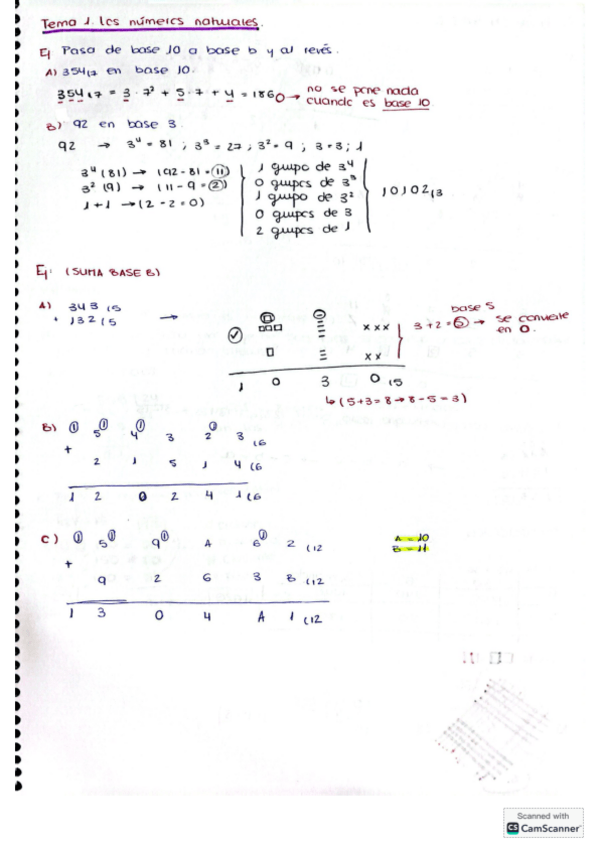 Tema 1. Los números naturales.
Ej Pasa de base 10 a base b y al revés.
A) 354(7 en base 10.
354(7 = 3 · 7² + 5 · 7 + 4 = 186○ → no se pone nada
cuando es base 10
B) 92 en base 3.
92 → 3⁴ = 81 ; 3³ = 27 ; 3² = 9 ; 3 = 3 ; 1
3⁴ (81) → (92 - 81 = 11) 1 grupo de 3⁴
3² (9) → (11 - 9 = 2) 0 grupos de 3³
1 + 1 → (2 - 2 = 0) 1 grupo de 3²
0 grupos de 3
2 grupos de 1
10102(3
Ej: (SUMA BASE B)
A) 343(5
+ 132(5 →
x x x
x x
base 5
3 + 2 = 5 → se convierte
en 0.
1 0 3 0(5
↳ (5 + 3 = 8 → 8 - 5 = 3)
B) ① 5① 4① 3 2① 3(6
+
2 1 5 1 4(6
1 2 0 2 4 1(6
C) ① 5① 9① A 6① 2(12
A = 10
B = 11
+
9 2 6 3 B(12
1 3 0 4 A 1(12
Scanned with
CS CamScanner